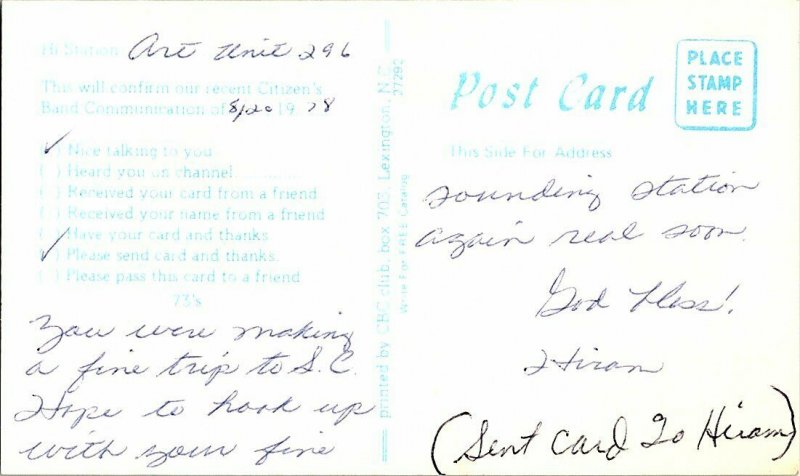 Hi Station Art Unit 296
This will confirm our recent Citizen's
Band Communication of 8/20 19 78
(✓) Nice talking to you
( ) Heard you on channel.............
( ) Received your card from a friend
( ) Received your name from a friend
( ) Have your card and thanks
(✓) Please send card and thanks.
( ) Please pass this card to a friend
73's
You were making
a fine trip to S.C.
Hope to hook up
with your fine
printed by CBC club, box 703, Lexington, N.C.
27292
Write For FREE Catalog
Post Card
PLACE
STAMP
HERE
This Side For Address
sounding station
again real soon.
God bless!
Hiram
(Sent Card To Hiram)